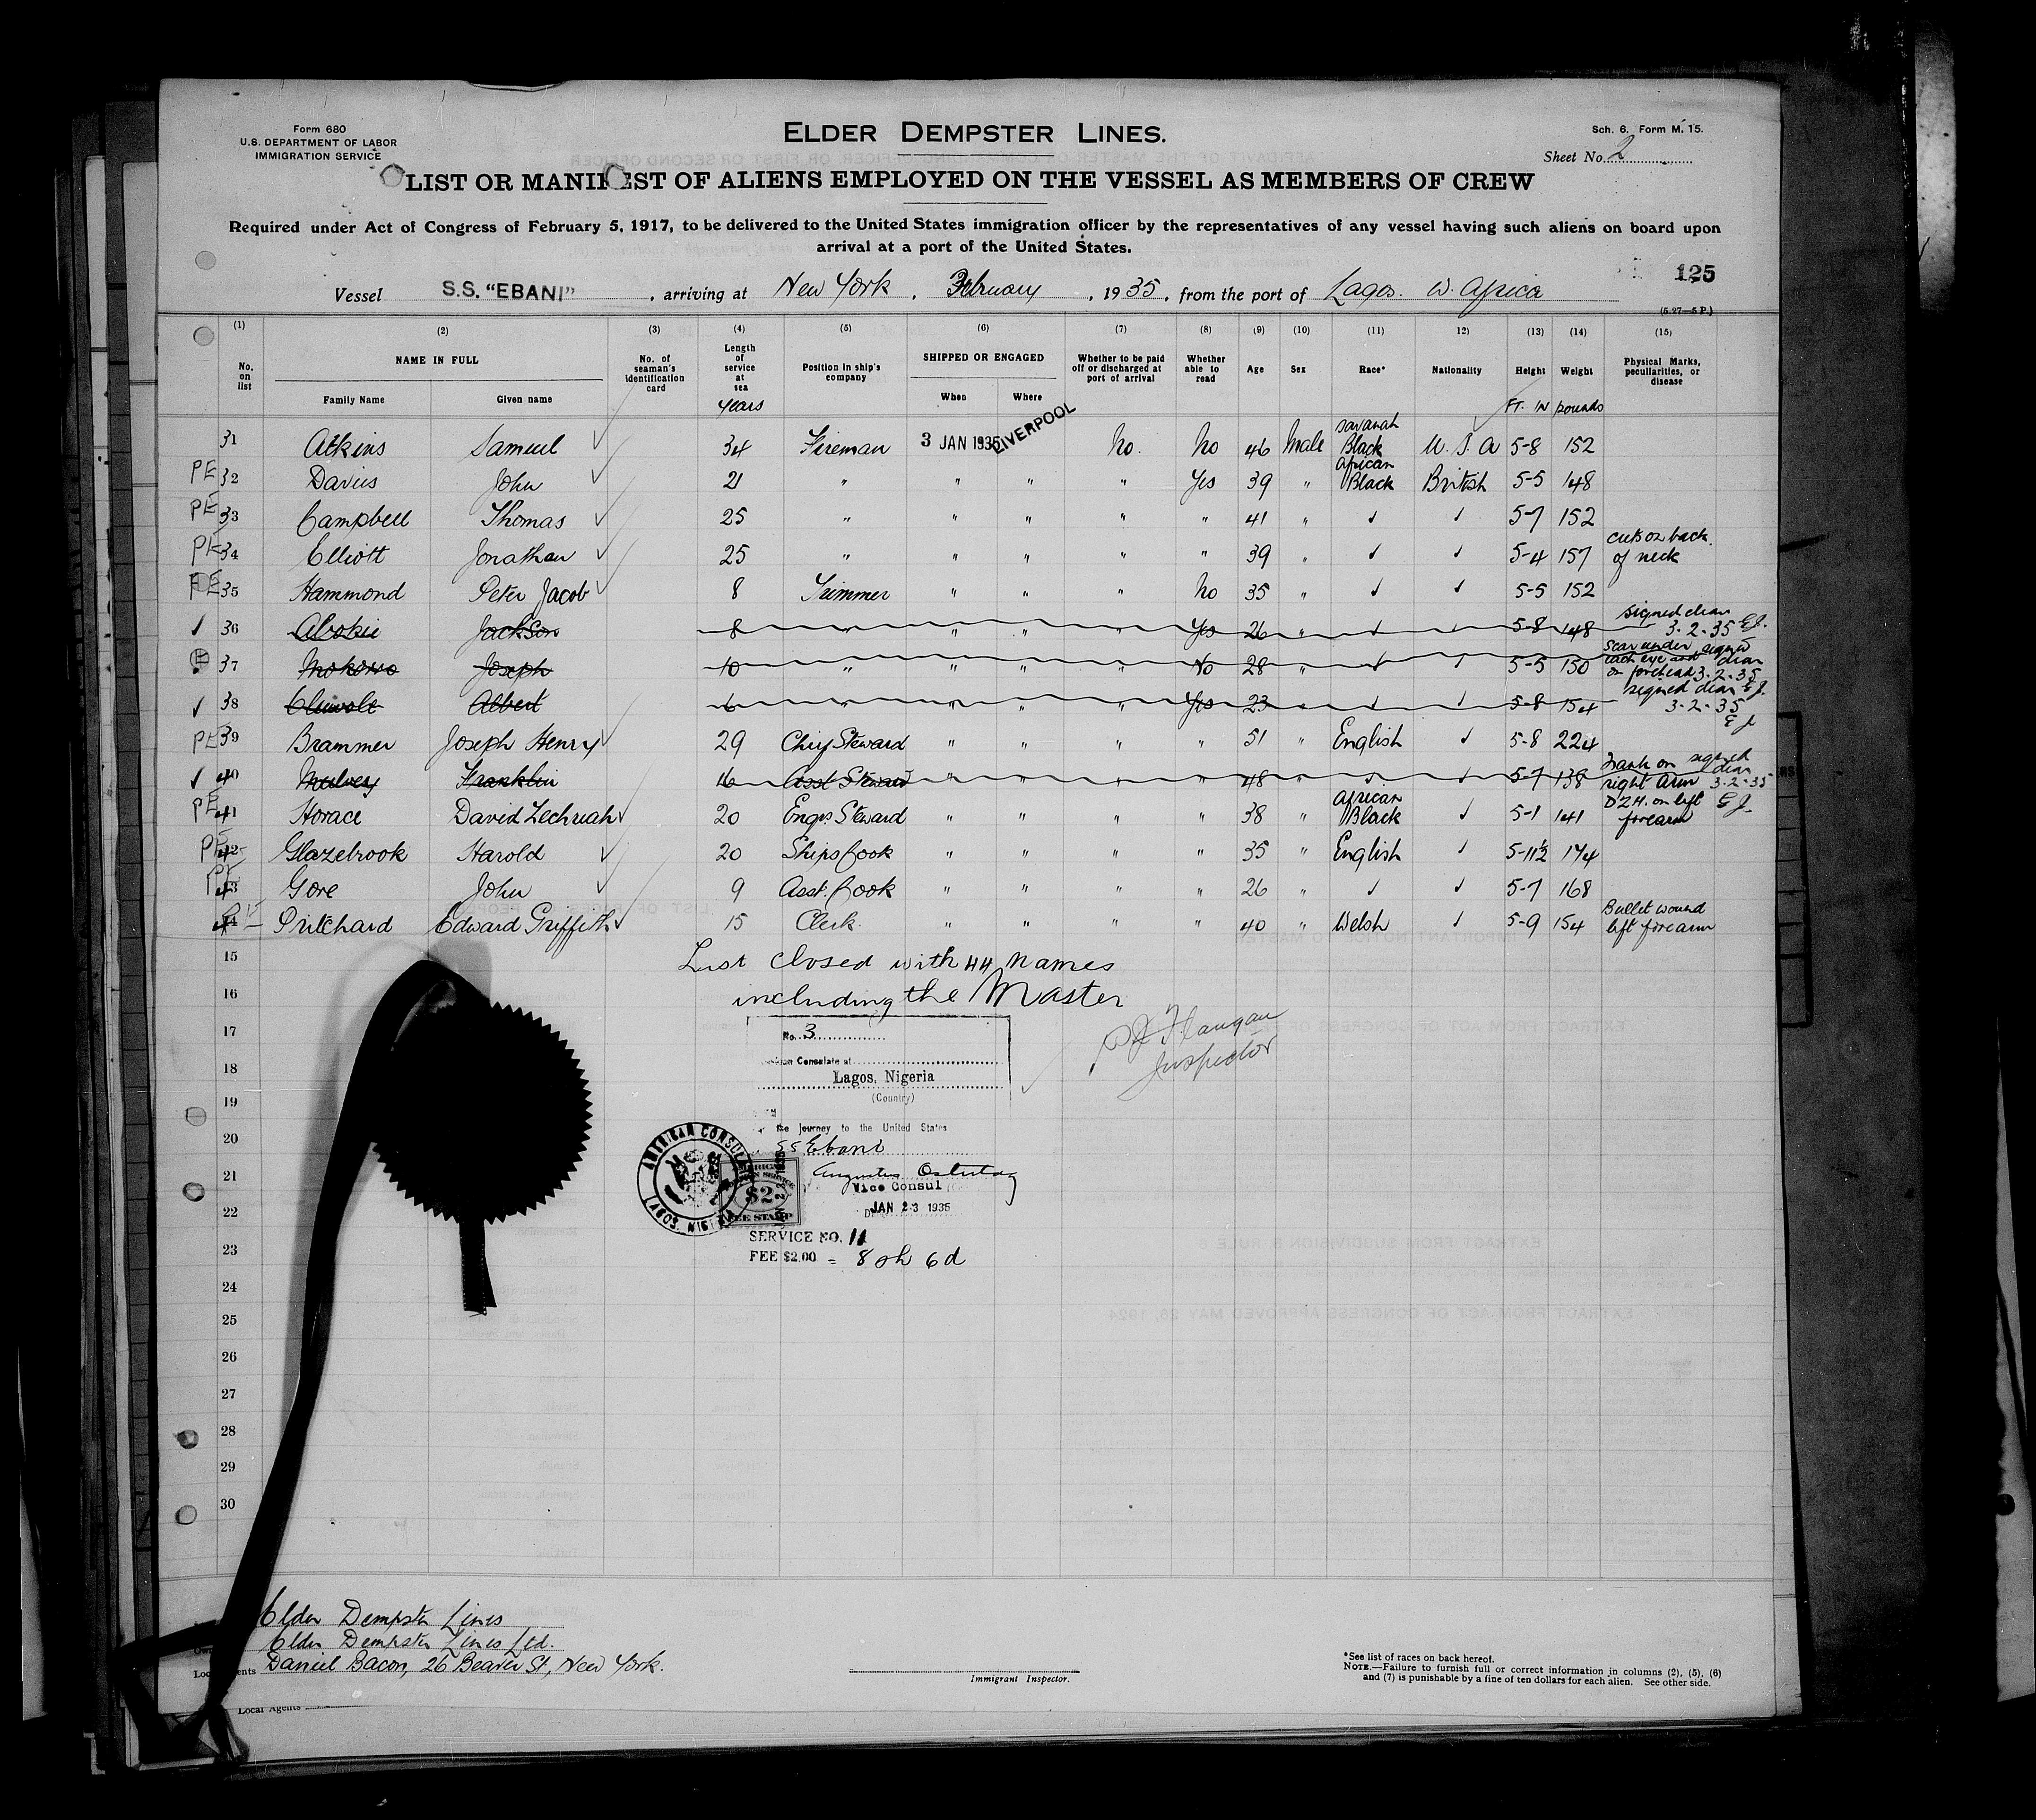 Form 680
U.S. DEPARTMENT OF LABOR
IMMIGRATION SERVICE
ELDER DEMPSTER LINES.
Sch. 6. Form M. 15.
Sheet No. 2
LIST OR MANIFEST OF ALIENS EMPLOYED ON THE VESSEL AS MEMBERS OF CREW
Required under Act of Congress of February 5, 1917, to be delivered to the United States immigration officer by the representatives of any vessel having such aliens on board upon
arrival at a port of the United States.
125
Vessel S.S. "EBANI", arriving at New York, February, 1935, from the port of Lagos. W. Africa
(5.27—5 P.)
(1) (2) (3) (4) (5) (6) (7) (8) (9) (10) (11) 12) (13) (14) (15)
No. on list
NAME IN FULL
Family Name Given name
No. of seaman's identification card
Length of service at sea
years
Position in ship's company
SHIPPED OR ENGAGED
When Where
Whether to be paid off or discharged at port of arrival
Whether able to read
Age Sex Race* Nationality Height Weight
Physical Marks, peculiarities, or disease
FT. IN pounds
31 Atkins Samuel 34 Fireman 3 JAN 1935 LIVERPOOL No. No 46 Male savanah Black U.S.A 5-8 152
PE 32 Davies John 21 " " " " Yes 39 " African Black British 5-5 148
PE 33 Campbell Thomas 25 " " " " " 41 " ✓ ✓ 5-7 152
PE 34 Elliott Jonathan 25 " " " " " 39 " ✓ ✓ 5-4 157 cuts on back of neck
PE 35 Hammond Peter Jacob 8 Trimmer " " " No 35 " ✓ ✓ 5-5 152
✓ 36 Abokie Jackson 8 " " " " Yes 26 " ✓ ✓ 5-8 148 signed clear 3.2.35 EJ.
37 Joseph 10 " " " " No 28 " ✓ ✓ 5-5 150 scar under each eye and on forehead signed clear 3.2.35
✓ 38 Albert 6 " " " " Yes 23 " ✓ ✓ 5-8 154 signed clear EJ. 3-2-35
PE 39 Brammer Joseph Henry 29 Chief Steward " " " " 51 " English ✓ 5-8 224
✓ 40 Mulvey Franklin 16 Asst Steward " " " " 48 " ✓ ✓ 5-7 138 mark on right arm signed clear 3-2-35 EJ.
PE 41 Horace David Zechriah 20 Engrs. Steward " " " " 38 " African Black ✓ 5-1 141 D.Z.H. on left forearm
PE 42 Glazebrook Harold 20 Ships Cook " " " " 35 " English ✓ 5-11½ 174
PE 43 Gore John 9 Asst. Cook " " " " 26 " ✓ ✓ 5-7 168
PE 44 Pritchard Edward Griffith 15 Clerk. " " " " 40 " Welsh ✓ 5-9 154 Bullet wound left forearm
15 List closed with 44 names
16 including the Master
17 No. 3
Flangan
Inspector
Consulate at
18 Lagos, Nigeria
(Country)
19
the Journey to the United States
20 SS Ebani
AMERICAN CONSULATE
LAGOS, NIGERIA
$2
FEE STAMP
21
Vice Consul
22 JAN 23 1935
SERVICE NO. 11
23 FEE $2.00 = 8 sh 6d
24
25
26
27
28
29
30
Elder Dempster Lines
Elder Dempster Lines Ltd.
Daniel Bacon, 26 Beaver St, New York.
Local Agents
Immigrant Inspector.
*See list of races on back hereof.
NOTE.—Failure to furnish full or correct information in columns (2), (5), (6)
and (7) is punishable by a fine of ten dollars for each alien. See other side.